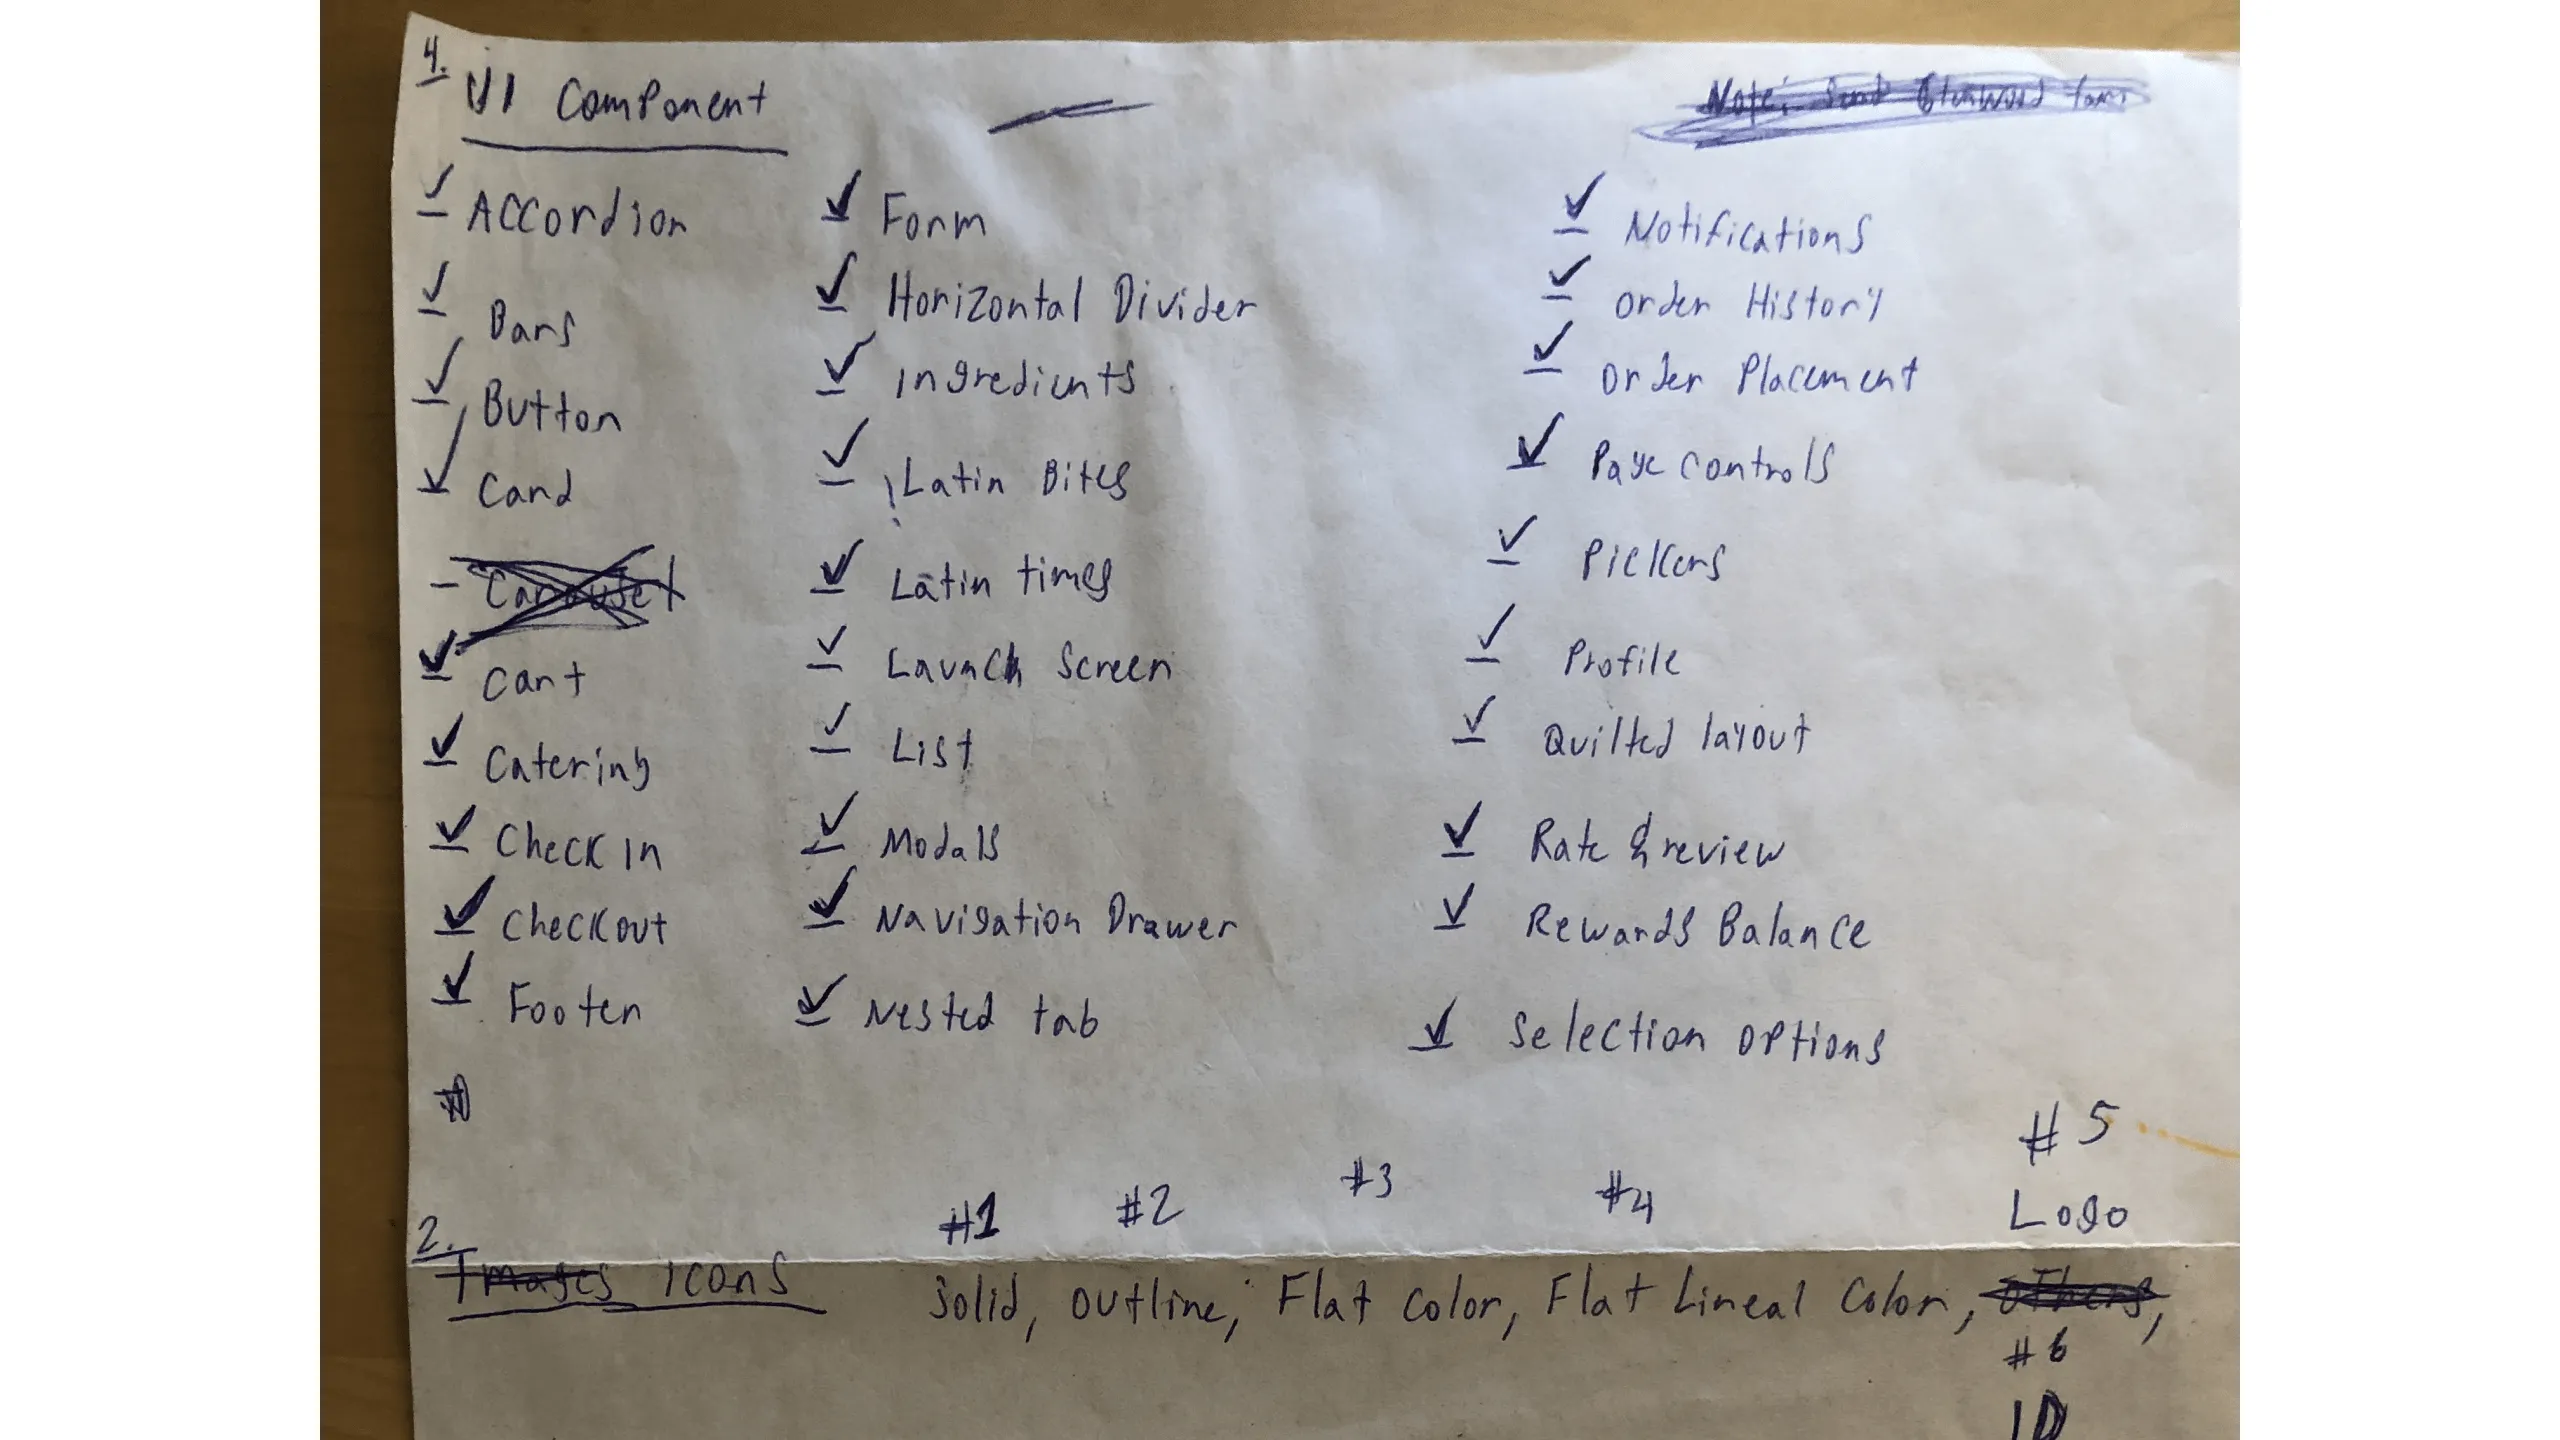 4.
UI Component
Note: Send
✓ Accordion
✓ Bars
✓ Button
✓ Card
- Carousel
✓ Cart
✓ Catering
✓ Check In
✓ Checkout
✓ Footer
✓ Form
✓ Horizontal Divider
✓ Ingredients
✓ ¡Latin Bites
✓ Latin times
✓ Launch Screen
✓ List
✓ Modals
✓ Navigation Drawer
✓ Nested tab
✓ Notifications
✓ Order History
✓ Order Placement
✓ Page controls
✓ Pickers
✓ Profile
✓ Quilted layout
✓ Rate & review
✓ Rewards Balance
✓ Selection options
2.
Images icons
#1 #2 #3 #4 #5
Logo
Solid, outline, Flat Color, Flat Lineal Color, others,
#6
ID